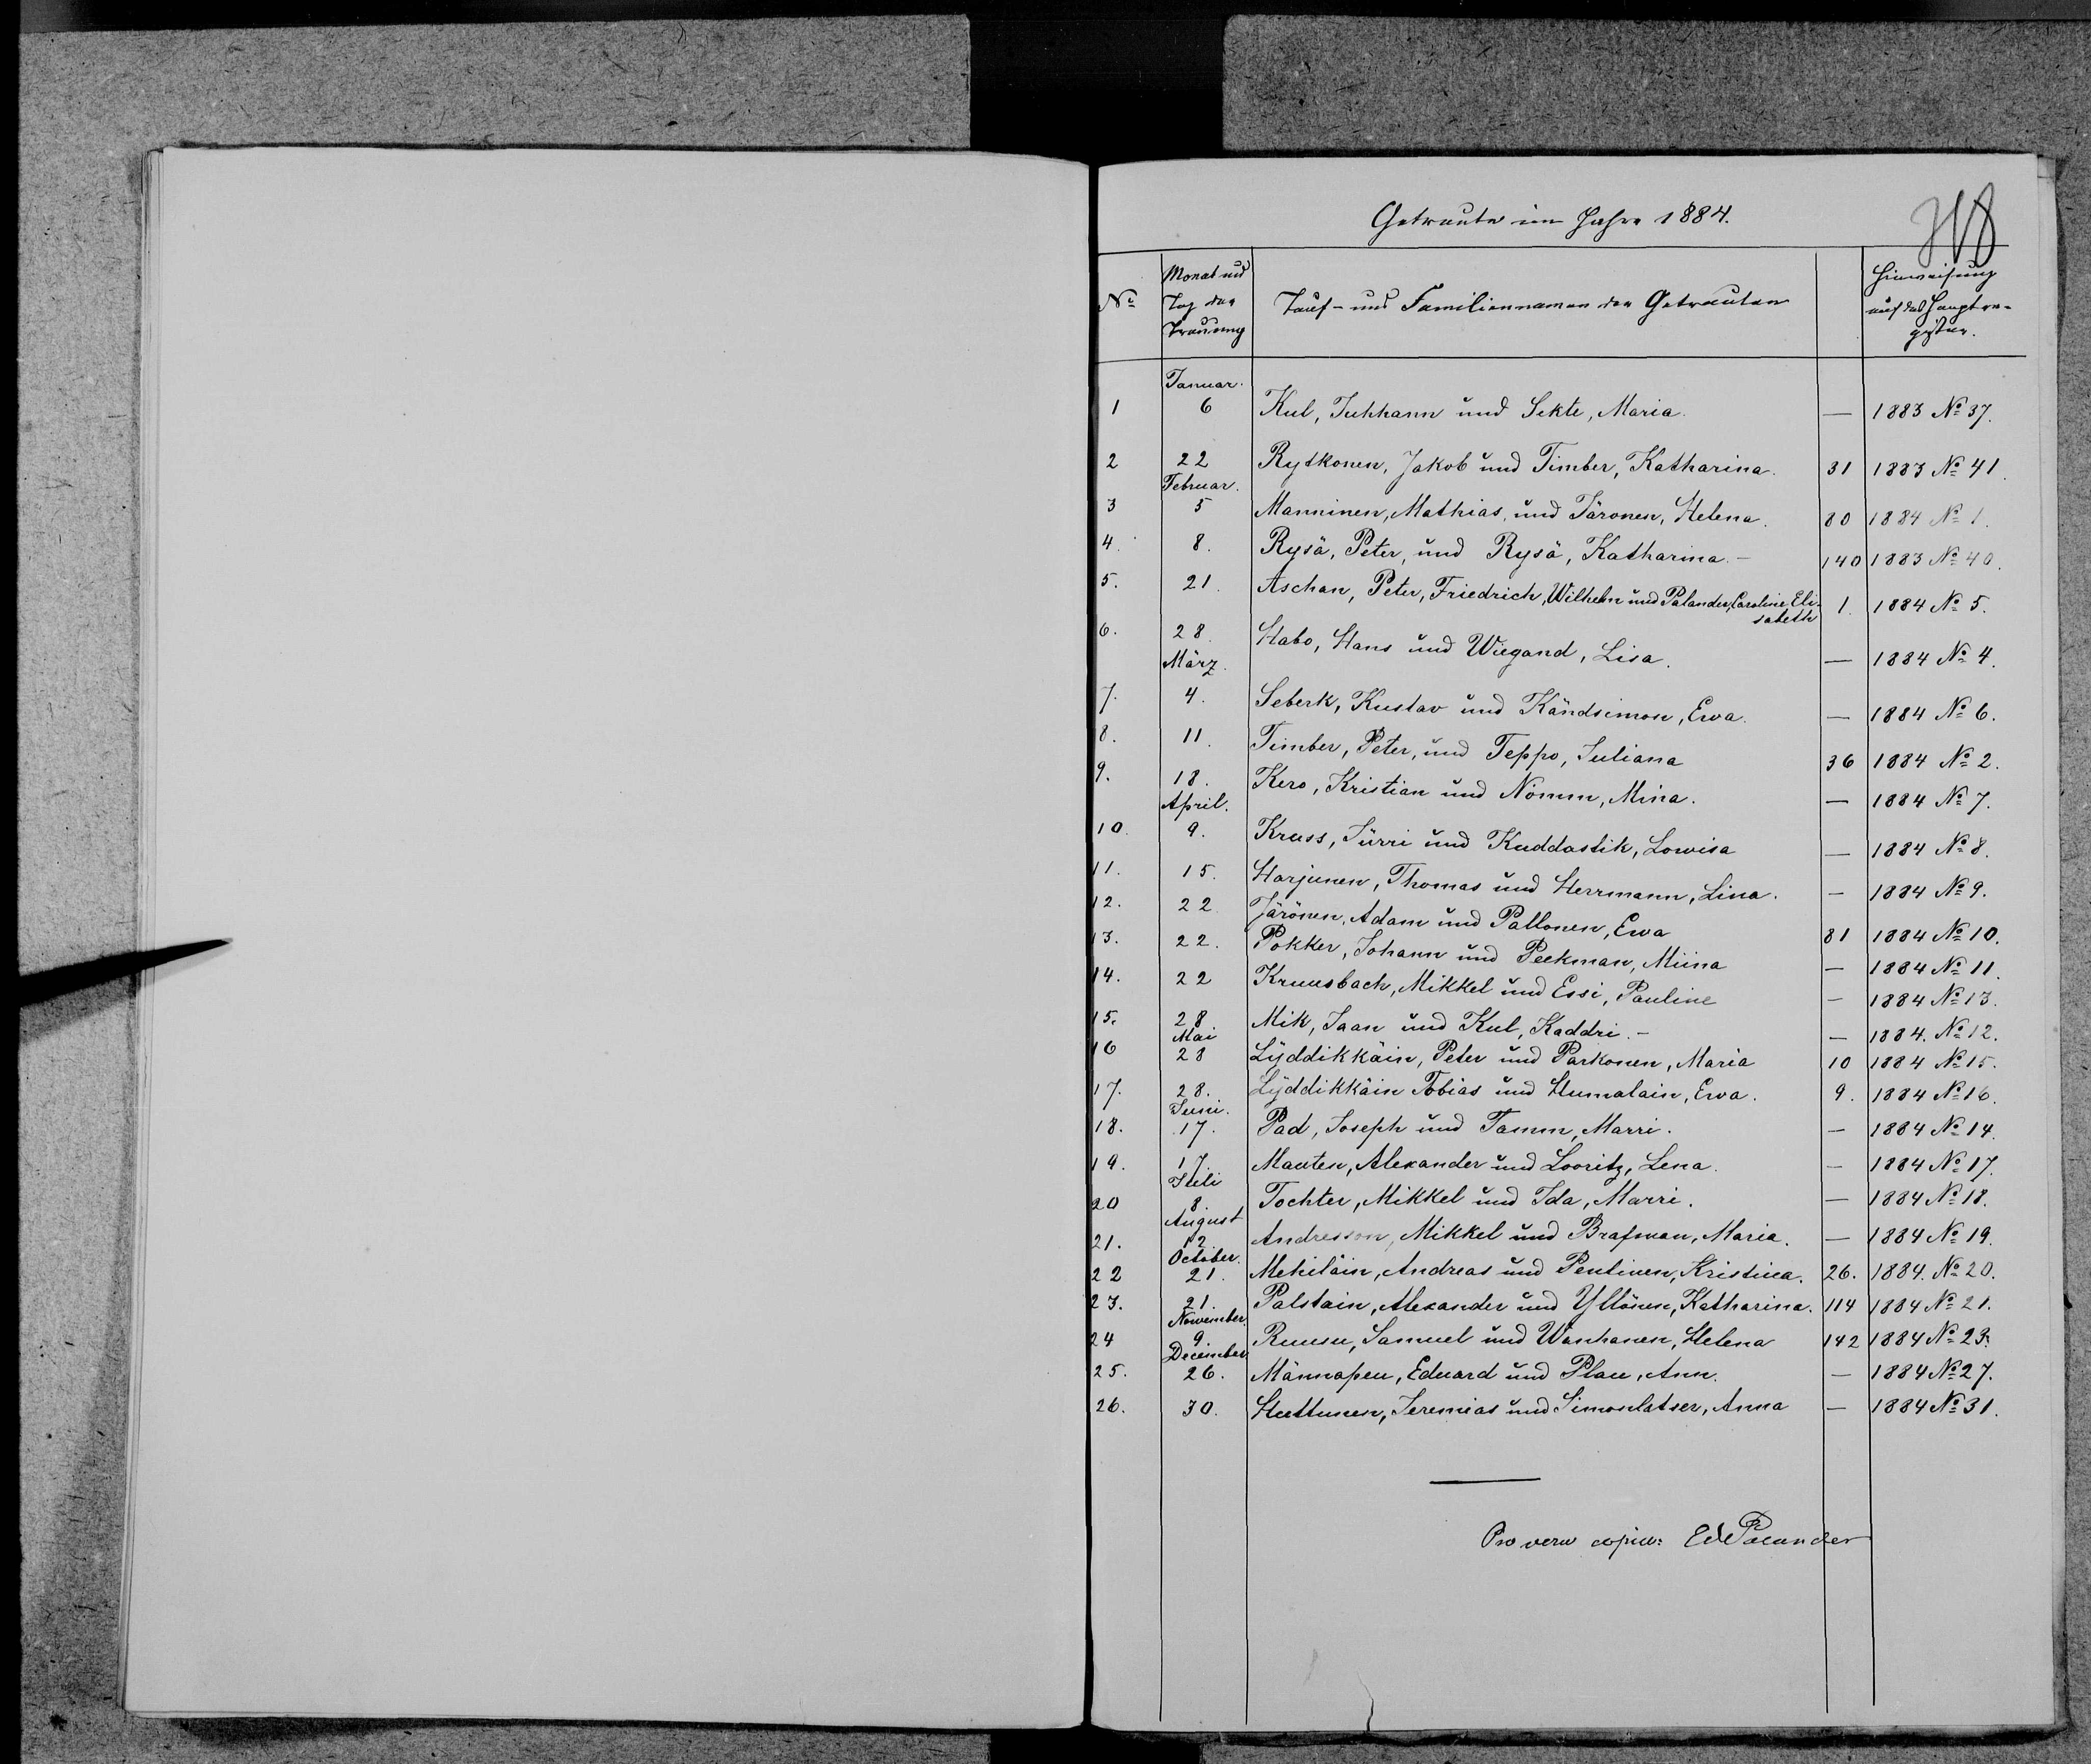 Getraute im Jahre 1884.
318
№ Monat und Tag der Trauung Tauf- und Familiennamen der Getrauten Hinweisung auf das Hauptregister.
Januar.
1 6 Kul, Juhhann und Sekte, Maria. — 1883 № 37.
2 22 Rytkonen, Jakob und Timber, Katharina. 31 1883 № 41.
Februar.
3 5 Manninen, Mathias, und Järonen, Helena. 80 1884 № 1.
4. 8. Rysä, Peter, und Rysä, Katharina. — 140 1883 № 40.
5. 21. Aschan, Peter, Friedrich, Wilhelm und Palander, Caroline Eli-
sabeth 1. 1884 № 5.
6. 28. Habo, Hans und Wiegand, Lisa. — 1884 № 4.
März.
7. 4. Seberk, Kustav und Kändsimon, Ewa. — 1884 № 6.
8. 11. Timber, Peter, und Teppo, Juliana 36 1884 № 2.
9. 18. Kero, Kristian und Nömm, Mina. — 1884 № 7.
April.
10. 9. Kruss, Jürri und Kuddastik, Lowisa — 1884 № 8.
11. 15. Harjunen, Thomas und Herrmann, Lina. — 1884 № 9.
12. 22 Järönen, Adam und Pallonen, Ewa 81 1884 № 10.
13. 22. Pokker, Johann und Peekman, Miina — 1884 № 11.
14. 22 Kruusbach, Mikkel und Essi, Pauline — 1884 № 13.
15. 28 Mik, Jaan und Kul, Kaddri. — — 1884. № 12.
Mai
16 28 Lyddikkäin, Peter und Parkonen, Maria 10 1884 № 15.
17. 28. Lyddikkäin Tobias und Humalain, Ewa. 9. 1884 № 16.
Juni.
18. 17. Pad, Joseph und Tamm, Marri. — 1884 № 14.
19. 17. Mauten, Alexander und Looritz, Lena. — 1884 № 17.
Juli
20 8. Tochter, Mikkel und Ida, Marri. — 1884 № 18.
August
21. 12. Andresson, Mikkel und Brafman, Maria. — 1884 № 19.
October.
22 21. Mehiläin, Andreas und Pentinen, Kristina. 26. 1884. № 20.
23. 21. Palstain, Alexander und Yllönen, Katharina. 114 1884 № 21.
November.
24 9. Ruusu, Samuel und Wanhanen, Helena 142 1884 № 23.
December
25. 26. Männapeu, Eduard und Plau, Ann. — 1884 № 27.
26. 30. Huttunen, Jeremias und Simonlatser, Anna — 1884 № 31.
Pro vera copia: Ed Palander